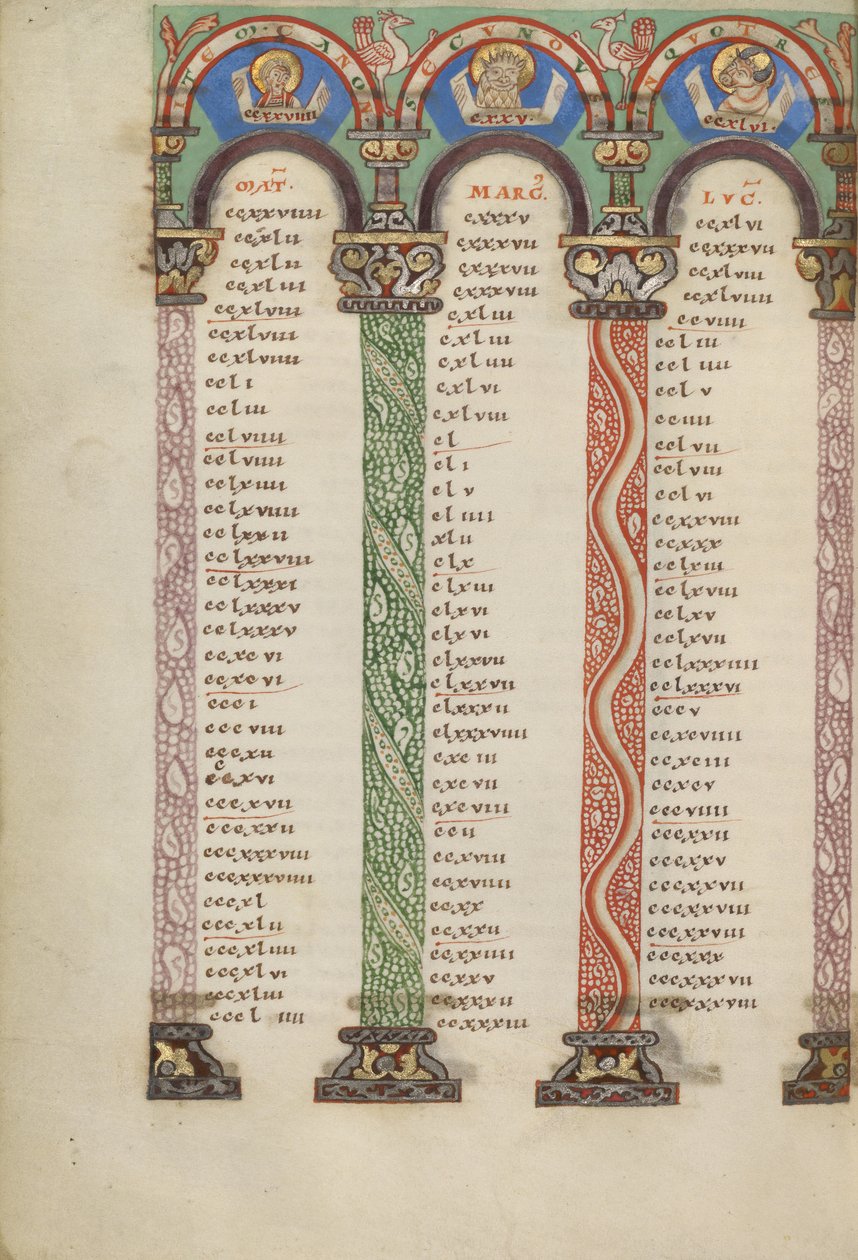 ITEM · CANON SECUNDUS IN QUO TRES
ccxxviiii
cxxv·
ccxlvi·
MAT·
ccxxviiii
ccxlii
ccxlii
ccxliii
ccxlviii
ccxlviii
ccxlviiii
ccli
ccliii
cclviiii
cclviiii
cclxiiii
cclxviiii
cclxxii
cclxxviii
cclxxxi
cclxxxv
cclxxxv
ccxcvi
ccxcvi
ccci
cccviii
cccxii
cccxvi
cccxvii
cccxxii
cccxxxviii
cccxxxviiii
cccxl
cccxlii
cccxliiii
cccxlvi
cccxliii
cccl iiii
MARC·
cxxxv
cxxxvii
cxxxvii
cxxxviii
cxliii
cxliii
cxliiii
cxlvi
cxlviii
cl
cli
clv
cliiii
xlii
clx
clxiii
clxvi
clxvi
clxxvii
clxxvii
clxxxii
clxxxviiii
cxciii
cxcvii
cxcviii
ccii
ccxviii
ccxviiii
ccxx
ccxxii
ccxxiiii
ccxxv
ccxxxii
ccxxxiii
LUC·
ccxlvi
ccxxxvii
ccxlviii
ccxlviiii
ccviiii
ccliii
ccliiii
cclv
cciiii
cclvii
cclviii
cclvi
ccxxviii
ccxxx
cclxiii
cclxviii
cclxv
cclxvii
cclxxxiiii
cclxxxvi
cccv
ccxcviiii
ccxciii
ccxcv
cccviiii
cccxxii
cccxxv
cccxxvii
cccxxviii
cccxxviii
cccxxx
cccxxxvii
cccxxxviii